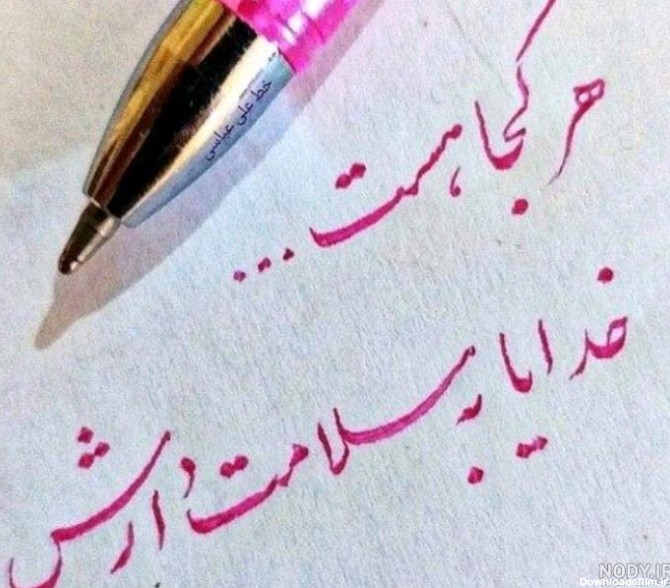 خط علی عباسی
هر کجا هست ...
خدایا به سلامت دارش
NODY.IR
Downloadefilm.ir